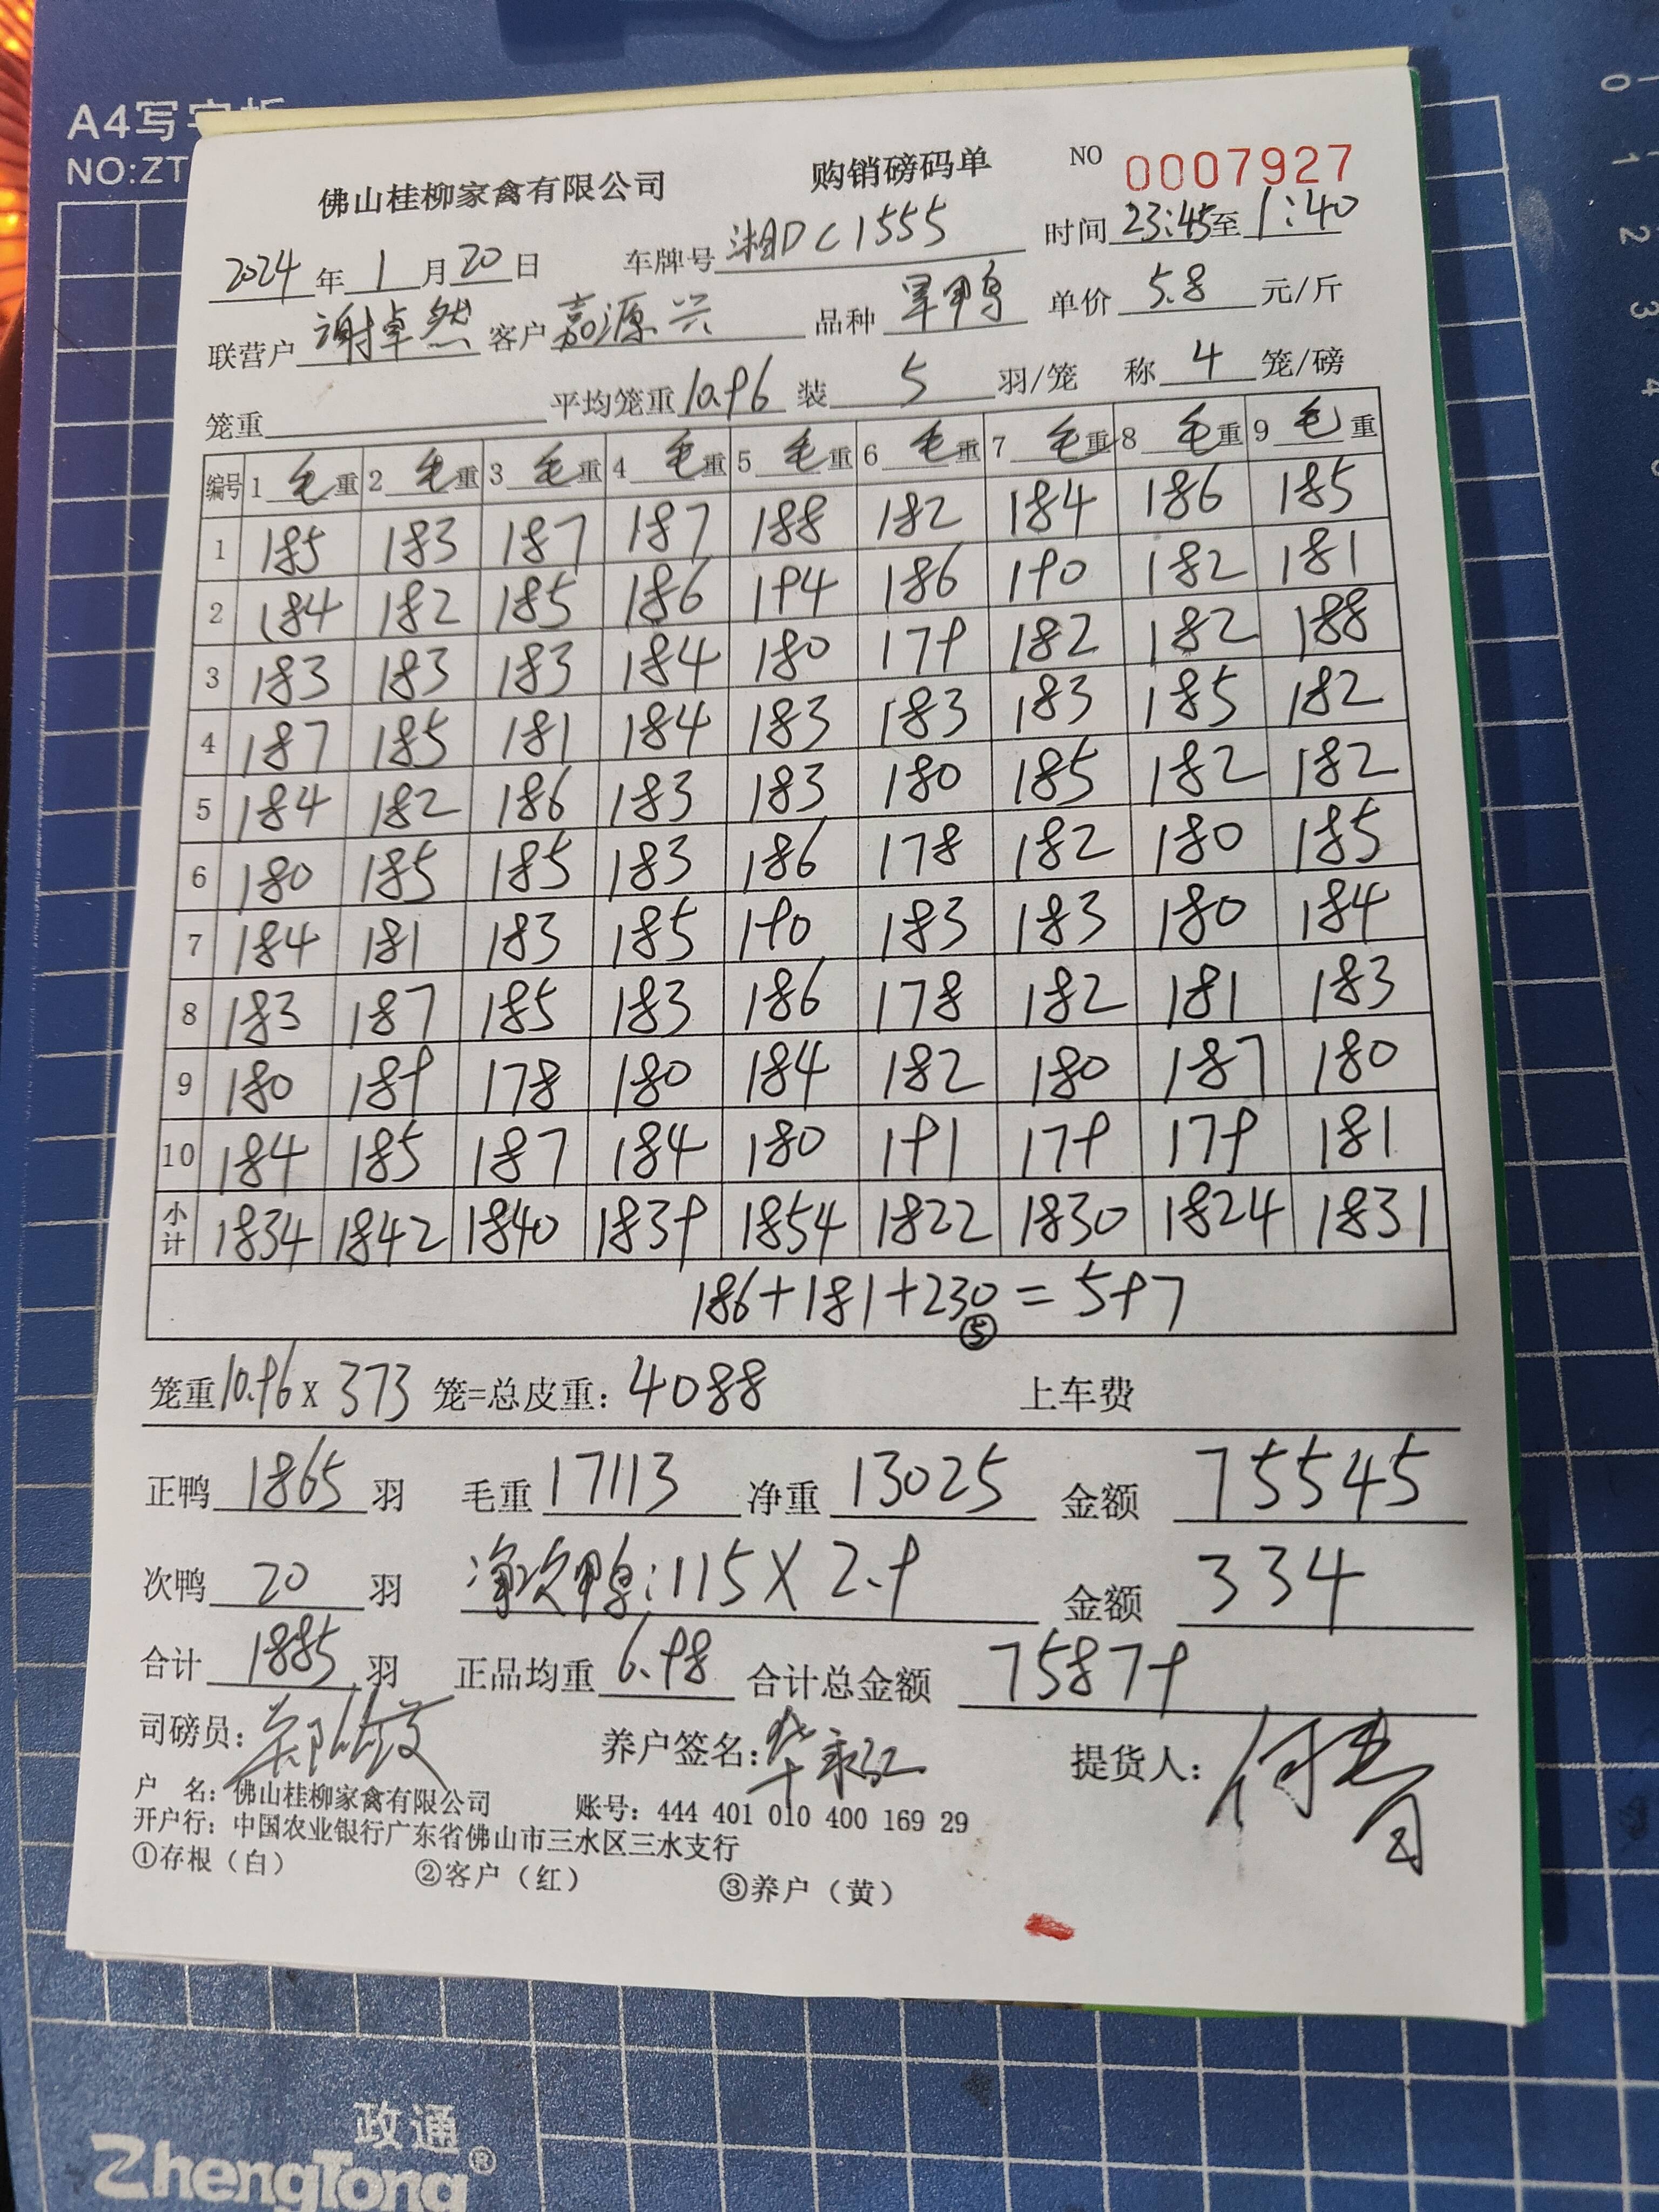 A4写字板
NO:ZT
佛山桂柳家禽有限公司 购销磅码单 NO 0007927
2024年1月20日 车牌号 湘DC1555 时间 23:45至1:40
联营户 谢卓然 客户 嘉源兴 品种 旱鸭 单价 5.8 元/斤
笼重 平均笼重 10.96 装 5 羽/笼 称 4 笼/磅
编号 1 毛重 2 毛重 3 毛重 4 毛重 5 毛重 6 毛重 7 毛重 8 毛重 9 毛重
1 185 183 187 187 188 182 184 186 185
2 184 182 185 186 194 186 190 182 181
3 183 183 183 184 180 179 182 182 188
4 187 185 181 184 183 183 183 185 182
5 184 182 186 183 183 180 185 182 182
6 180 185 185 183 186 178 182 180 185
7 184 181 183 185 190 183 183 180 184
8 183 187 185 183 186 178 182 181 183
9 180 189 178 180 184 182 180 187 180
10 184 185 187 184 180 191 179 179 181
小计 1834 1842 1840 1839 1854 1822 1830 1824 1831
186+181+230=597
⑤
笼重10.96x 373 笼=总皮重: 4088 上车费
正鸭 1865 羽 毛重 17113 净重 13025 金额 75545
次鸭 20 羽 净次鸭:115X2.9 金额 334
合计 1885 羽 正品均重 6.98 合计总金额 75879
司磅员: 养户签名: 华永红 提货人:
户 名: 佛山桂柳家禽有限公司 账号: 444 401 010 400 169 29
开户行: 中国农业银行广东省佛山市三水区三水支行
①存根（白） ②客户（红） ③养户（黄）
政通
ZhengTong®
0
1
2
3
4